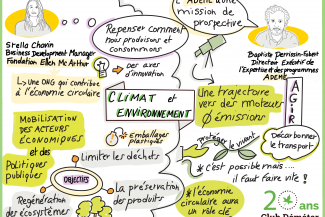 L'ADEME a une
mission de
prospective
Repenser comment
nous produisons et
consommons
Stella Chavin
Business Development Manager
Fondation Ellen Mc Arthur
Baptiste Perrissin-Fabert
Directeur Exécutif de
l'Expertise et des programmes
ADEME
par axes
d'innovation
↳ Une ONG qui contribue
à l'économie circulaire
CLIMAT et
ENVIRONNEMENT
Une trajectoire
vers des moteurs
0 émissions
AGIR
MOBILISATION
DES ACTEURS
ÉCONOMIQUES
et
Politiques
publiques
Emballages
plastiques
protéger le vivant
Décarbonner
le transport
Limiter les déchets
OBJECTIFS
* c'est possible mais....
il faut faire vite !
La préservation
des produits
Régénération
des écosystèmes
* l'économie
circulaire aura
un rôle clé
20 ans
Club Déméter